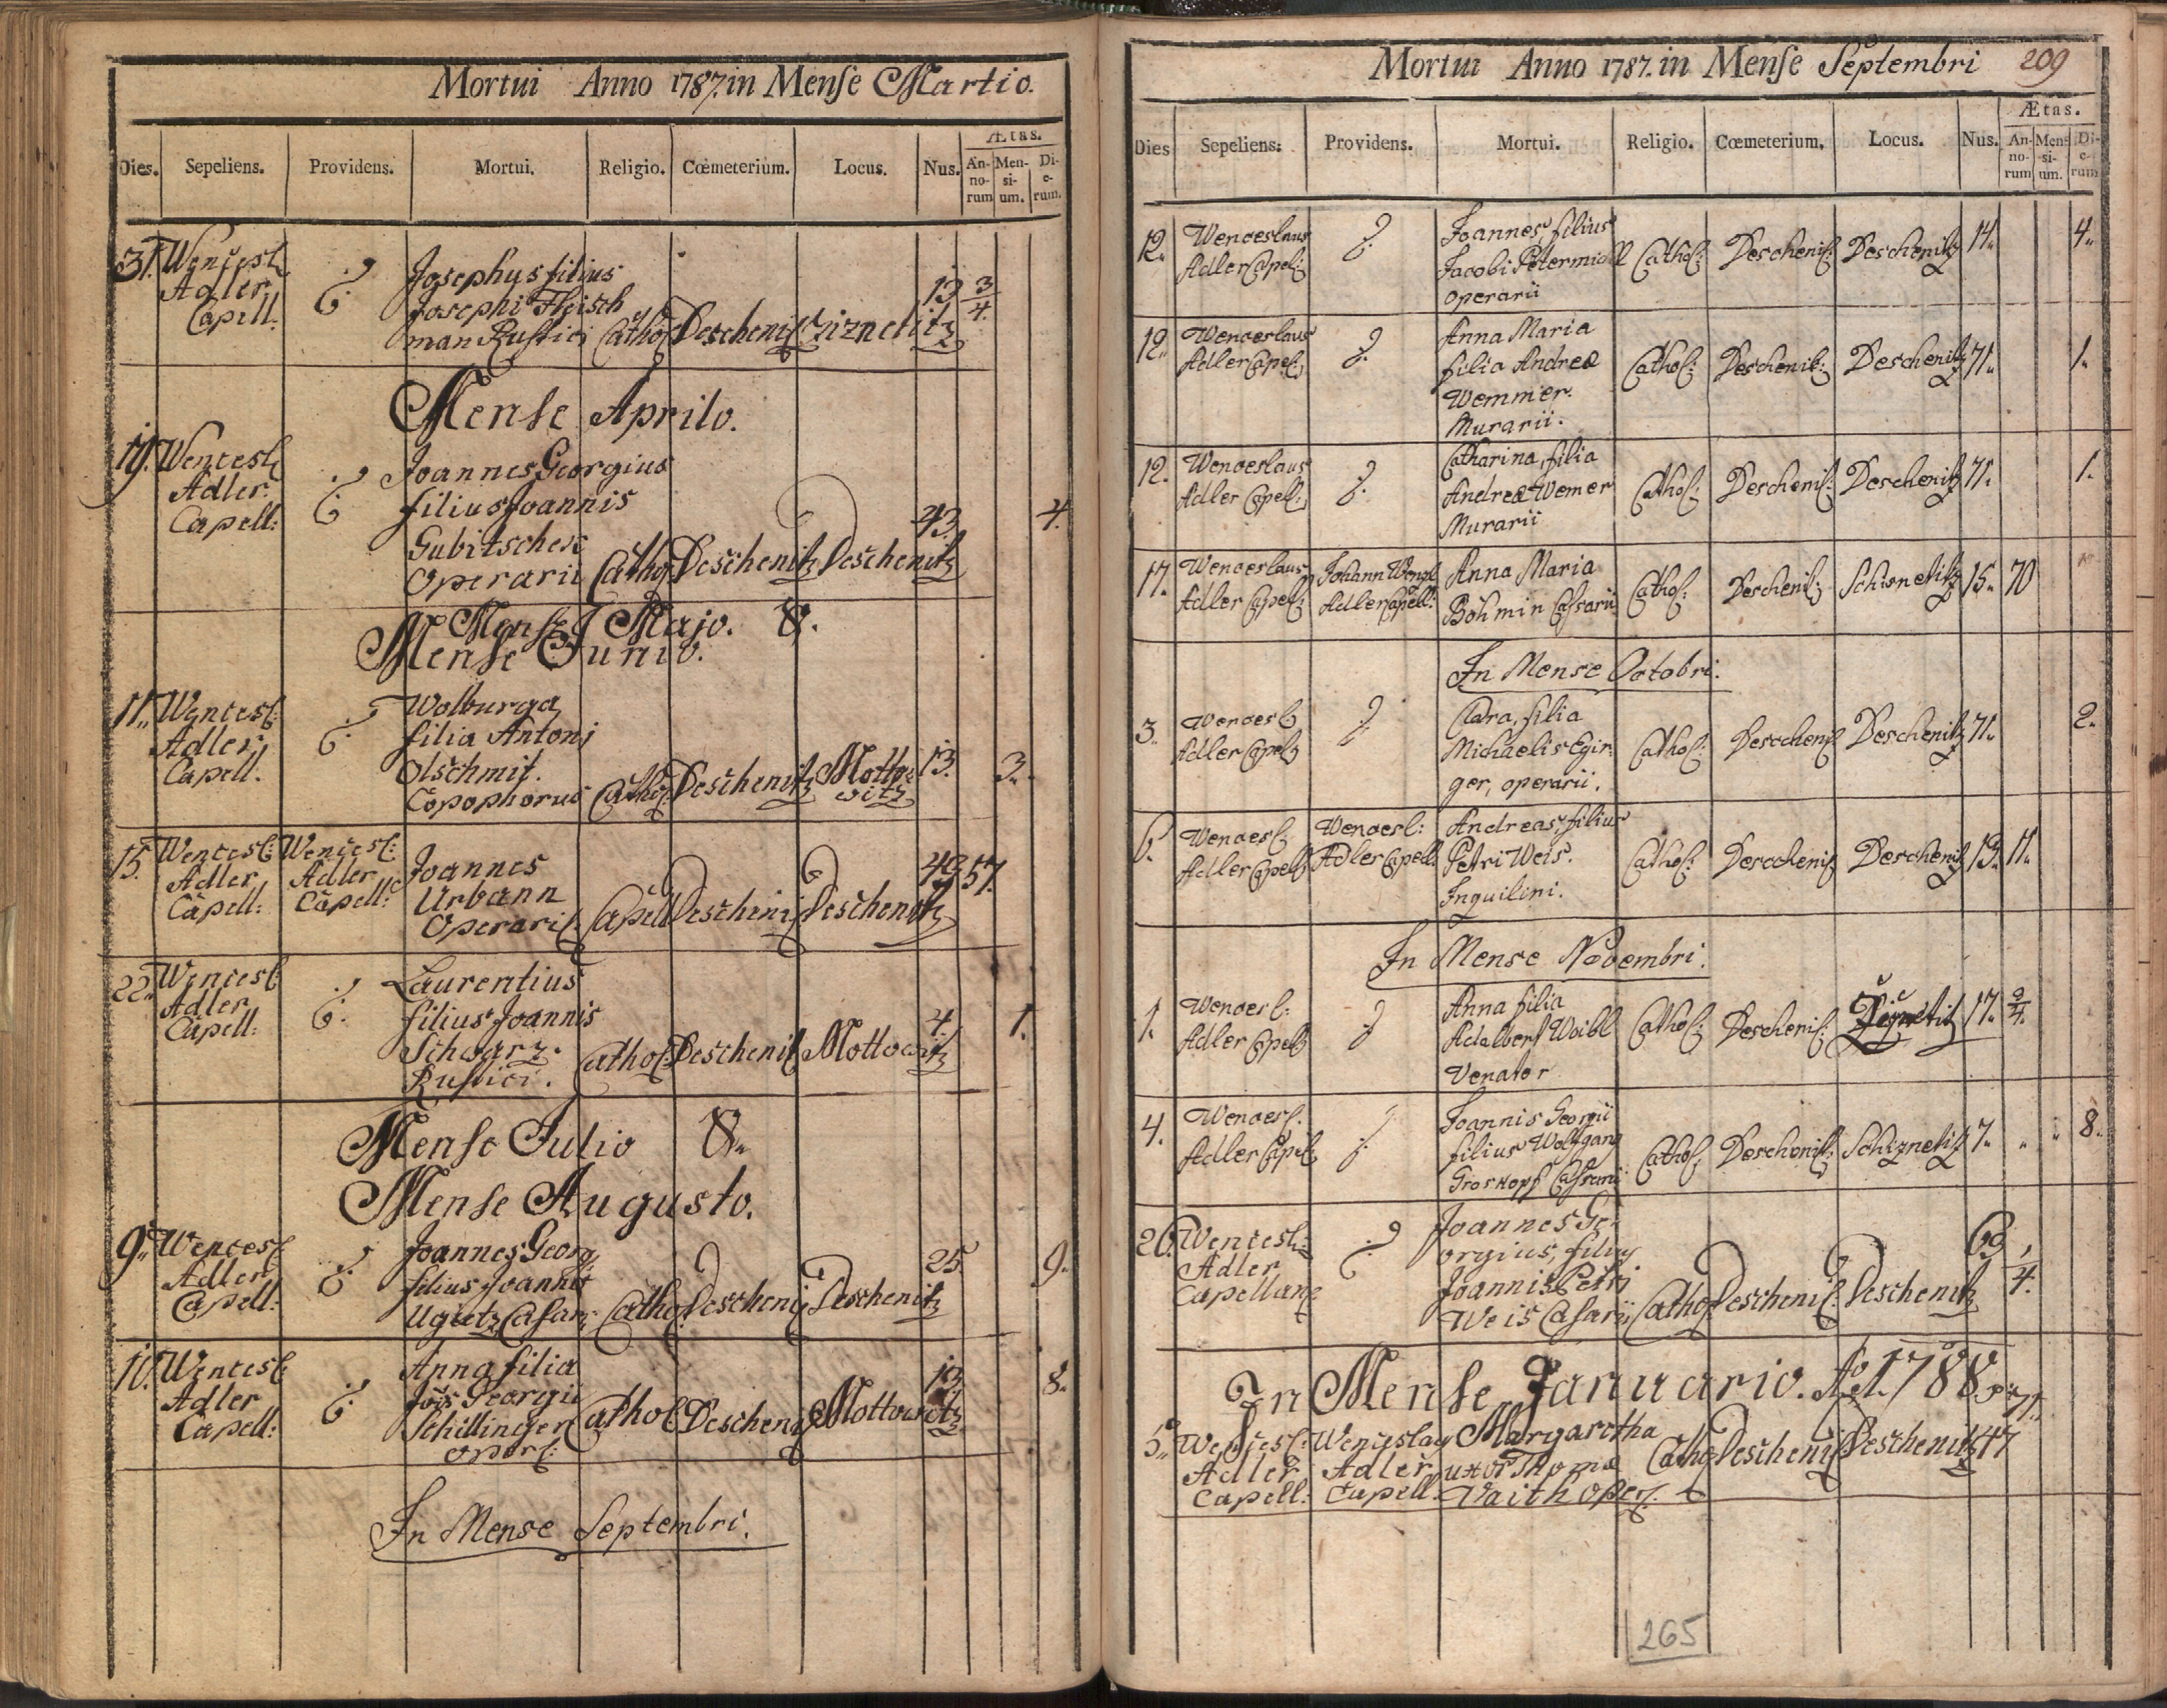 Mortui Anno 1787. in Mense Martio.
Dies. Sepeliens. Providens. Mortui. Religio. Cœmeterium. Locus. Nus. Ætas.
An-norum Men-si-um. Di-e-rum.
31. Wencesl. Josephus filius
Adler Josephi Fleisch 13 3/4
Capell. man Rustici Cathol Deschenitz
Mense Aprilo.
19. Wencesl Joannes Georgius
Adler filius Joannis 43. 4.
Capell: Gubitschek
Operarii Cathol Deschenitz Deschenitz
Mense Majo.
Mense Junio.
11. Wencesl: Wolburga
Adler filia Antoni
Capell. Olschmit. 13. 3.
Copophorus Cathol Deschenitz Mottowitz
15. Wencesl: Wencesl: Joannes 49 57.
Adler Adler Urbann
Capell: Capell: Operarii Capell Deschenitz Deschenitz
22. Wencesl Laurentius
Adler filius Joannis 4. 1.
Capell: Schwarz. Cathol Deschenitz Mottowitz
Rustici.
Mense Julio
Mense Augusto.
9. Wencesl Joannes Georg 25. 9.
Adler filius Joannis
Capell: Casari Cathol Deschenitz Deschenitz
10. Wencesl Anna filia 8.
Adler Jois Georgii
Capell: Schillinger Cathol Deschenitz Mottowitz
oper:
In Mense Septembri.
Mortui Anno 1787. in Mense Septembri 209
Dies Sepeliens: Providens. Mortui. Religio. Cœmeterium. Locus. Nus. Ætas.
An-no-rum Men-si-um. Di-e-rum
12. Wenceslaus Joannes filius
Adler Capel: Jacobi Petermichl Cathol: Deschenitz Deschenitz 14. 4.
operarii
12. Wenceslaus Anna Maria
Adler Capel: filia Andreæ Cathol: Deschenitz Deschenitz 71. 1.
Wemmer.
Murarii.
12. Wenceslaus Catharina, filia
Adler Capell: Andreæ Wemer Cathol: Deschenitz Deschenitz 71. 1.
Murarii
17. Wenceslaus Johann Wenzl Anna Maria
Adler Capel: Adler Capell: Böhmin Casarii Cathol: Deschenitz 15. 70
In Mense Octobri.
3. Wencesl Clara, filia 2.
Adler Capel Michaelis Egin- Cathol: Deschenitz Deschenitz 71.
ger, operarii.
6. Wencesl: Wencesl: Andreas, filius
Adler Capell Adler Capell. Petri Weis. Cathol: Deschenitz Deschenitz 13. 11.
Inquilini.
In Mense Novembri.
1. Wencesl: Anna filia
Adler Capell Adalbert Woibl Cathol: Deschenitz 17. 2/4.
Venator
4. Wencesl. Joannis Georgii
Adler Capel filius Wolfgang Cathol: Deschenitz Schiznetitz 7. 8.
Groskopf Casarii
26. Wencesl: Joannes Ge-
Adler orgius filius 69
Capellane Joannis Petri 4.
Weis Casarii Cathol Deschenitz Deschenitz
In Mense Januario. 1788
5. Wencesl: Wenceslaus Margaretha
Adler Adler uxor Thomæ Cathol Deschenitz Deschenitz 47
Capell: Capell: Vaith oper.
265